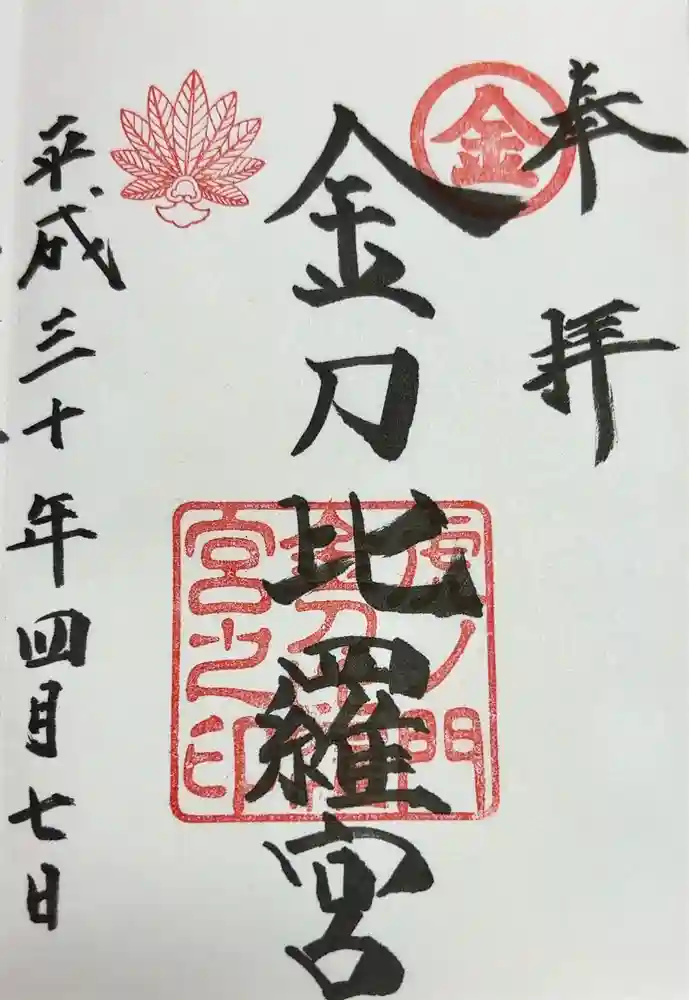 奉拝
金
金刀比羅宮
虎ノ門
金刀比羅
宮之印
平成三十年四月七日